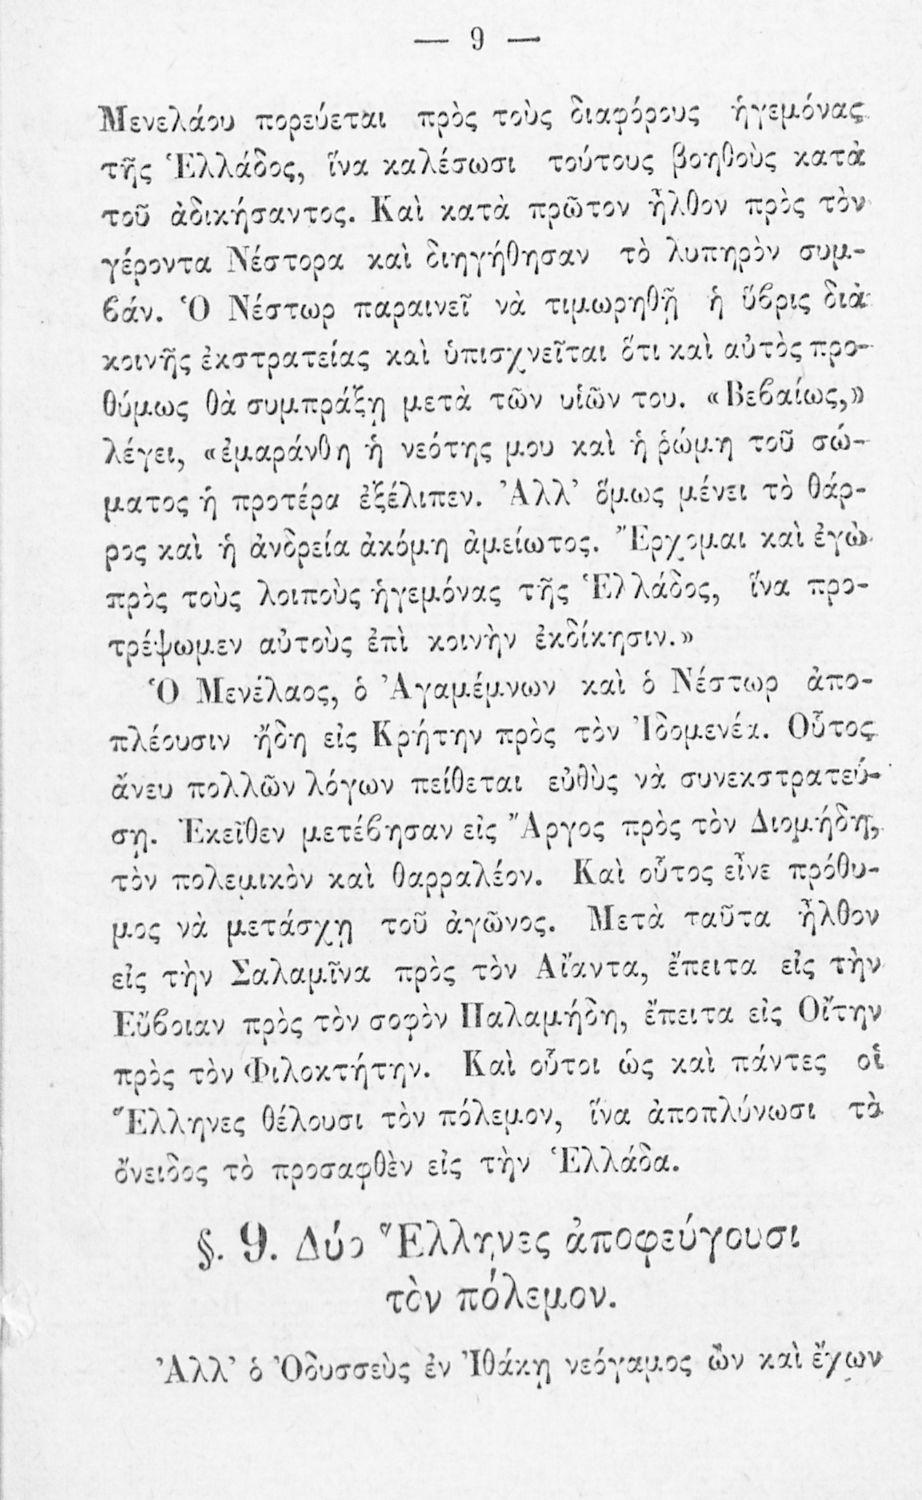 — 9 —
Μενελάου πορεύεται πρὸς τοὺς διαφόρους ἡγεμόνας
τῆς Ἑλλάδος, ἵνα καλέσωσι τούτους βοηθοὺς κατὰ
τοῦ ἀδικήσαντος. Καὶ κατὰ πρῶτον ἦλθον πρὸς τὸν
γέροντα Νέστορα καὶ διηγήθησαν τὸ λυπηρὸν συμ-
ϐάν. Ὁ Νέστωρ παραινεῖ νὰ τιμωρηθῇ ἡ ὕϐρις διὰ
κοινῆς ἐκστρατείας καὶ ὑπισχνεῖται ὅτι καὶ αὐτὸς προ-
θύμως θὰ συμπράξῃ μετὰ τῶν υἱῶν του. «Βεϐαίως,»
λέγει, «ἐμαράνθη ἡ νεότης μου καὶ ἡ ῥώμη τοῦ σώ-
ματος ἡ προτέρα ἐξέλιπεν. Ἀλλ’ ὅμως μένει τὸ θάρ-
ρος καὶ ἡ ἀνδρεία ἀκόμη ἀμείωτος. Ἔρχομαι καὶ ἐγὼ
πρὸς τοὺς λοιποὺς ἡγεμόνας τῆς Ἑλλάδος, ἵνα προ-
τρέψωμεν αὐτοὺς ἐπὶ κοινὴν ἐκδίκησιν.»
Ὁ Μενέλαος, ὁ Ἀγαμέμνων καὶ ὁ Νέστωρ ἀπο-
πλέουσιν ἤδη εἰς Κρήτην πρὸς τὸν Ἰδομενέα. Οὗτος
ἄνευ πολλῶν λόγων πείθεται εὐθὺς νὰ συνεκστρατεύ-
σῃ. Ἐκεῖθεν μετέϐησαν εἰς Ἄργος πρὸς τὸν Διομήδη,
τὸν πολεμικὸν καὶ θαρραλέον. Καὶ οὗτος εἶνε πρόθυ-
μος νὰ μετάσχῃ τοῦ ἀγῶνος. Μετὰ ταῦτα ἦλθον
εἰς τὴν Σαλαμῖνα πρὸς τὸν Αἴαντα, ἔπειτα εἰς τὴν
Εὔϐοιαν πρὸς τὸν σοφὸν Παλαμήδη, ἔπειτα εἰς Οἴτην
πρὸς τὸν Φιλοκτήτην. Καὶ οὗτοι ὡς καὶ πάντες οἱ
Ἕλληνες θέλουσι τὸν πόλεμον, ἵνα ἀποπλύνωσι τὸ
ὄνειδος τὸ προσαφθὲν εἰς τὴν Ἑλλάδα.
§. 9. Δύο Ἕλληνες ἀποφεύγουσι
τὸν πόλεμον.
Ἀλλ’ ὁ Ὀδυσσεὺς ἐν Ἰθάκῃ νεόγαμος ὢν καὶ ἔχων